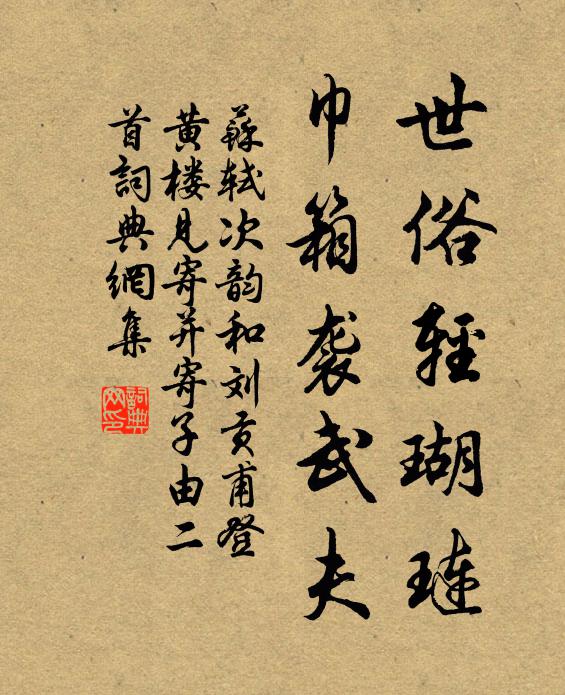 世俗輕瑚璉
巾箱袭武夫
蘇轼次韵和刘贡甫登
黄楼见寄并寄子由二
首詞典網集
詞典
网印